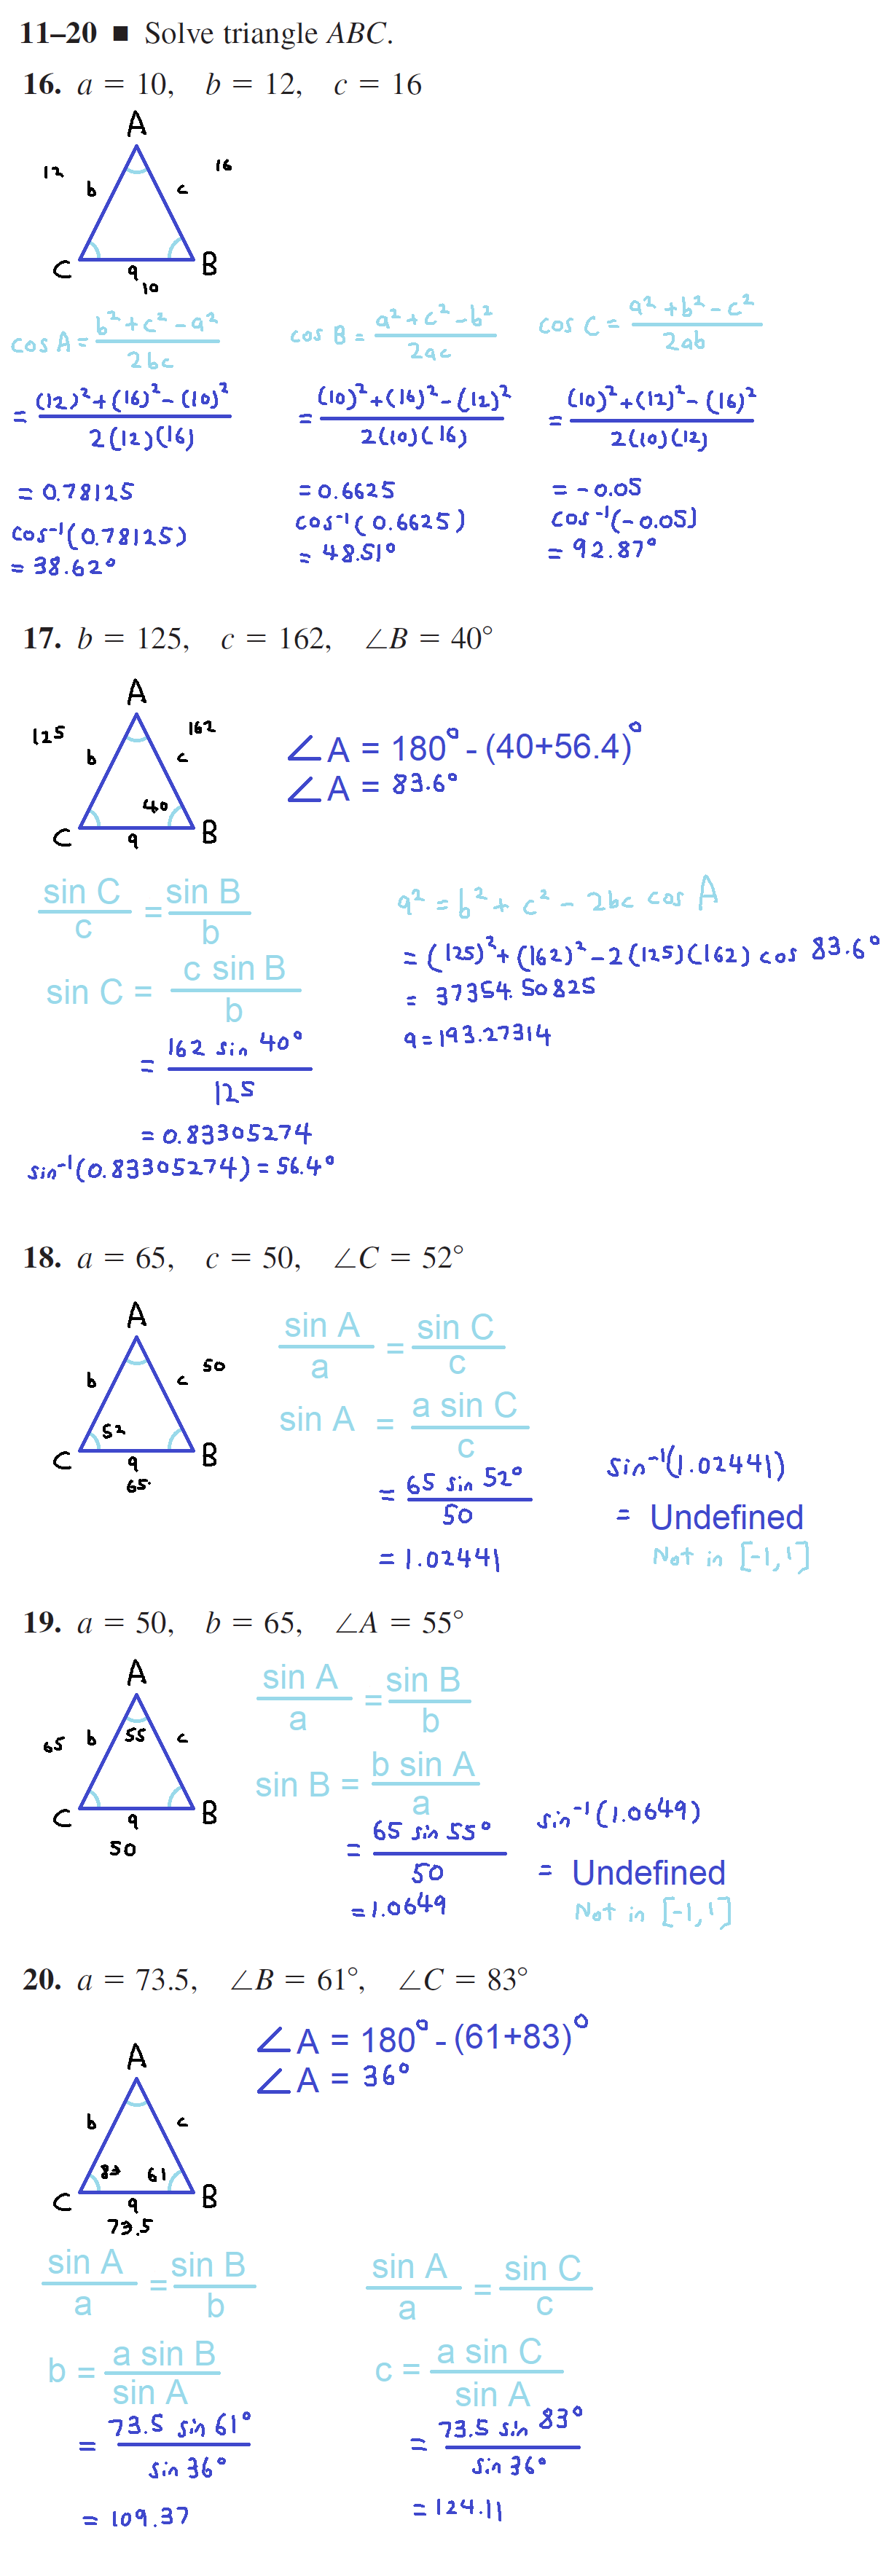 11–20 ■ Solve triangle ABC.
16. a = 10, b = 12, c = 16
A
12 b c 16
C a B
10
cos A = b² + c² - a² / 2bc
cos B = a² + c² - b² / 2ac
cos C = a² + b² - c² / 2ab
= (12)² + (16)² - (10)² / 2(12)(16)
= (10)² + (16)² - (12)² / 2(10)(16)
= (10)² + (12)² - (16)² / 2(10)(12)
= 0.78125
= 0.6625
= -0.05
cos⁻¹(0.78125)
cos⁻¹(0.6625)
cos⁻¹(-0.05)
= 38.62°
= 48.51°
= 92.87°
17. b = 125, c = 162, ∠B = 40°
A
125 b c 162
40
C a B
∠A = 180° - (40+56.4)°
∠A = 83.6°
sin C / c = sin B / b
sin C = c sin B / b
= 162 sin 40° / 125
= 0.83305274
sin⁻¹(0.83305274) = 56.4°
a² = b² + c² - 2bc cos A
= (125)² + (162)² - 2(125)(162) cos 83.6°
= 37354.50825
a = 193.27314
18. a = 65, c = 50, ∠C = 52°
A
b c 50
52
C a B
65
sin A / a = sin C / c
sin A = a sin C / c
= 65 sin 52° / 50
= 1.02441
sin⁻¹(1.02441)
= Undefined
Not in [-1,1]
19. a = 50, b = 65, ∠A = 55°
A
65 b 55 c
C a B
50
sin A / a = sin B / b
sin B = b sin A / a
= 65 sin 55° / 50
= 1.0649
sin⁻¹(1.0649)
= Undefined
Not in [-1,1]
20. a = 73.5, ∠B = 61°, ∠C = 83°
A
b c
83 61
C a B
73.5
∠A = 180° - (61+83)°
∠A = 36°
sin A / a = sin B / b
b = a sin B / sin A
= 73.5 sin 61° / sin 36°
= 109.37
sin A / a = sin C / c
c = a sin C / sin A
= 73.5 sin 83° / sin 36°
= 124.11